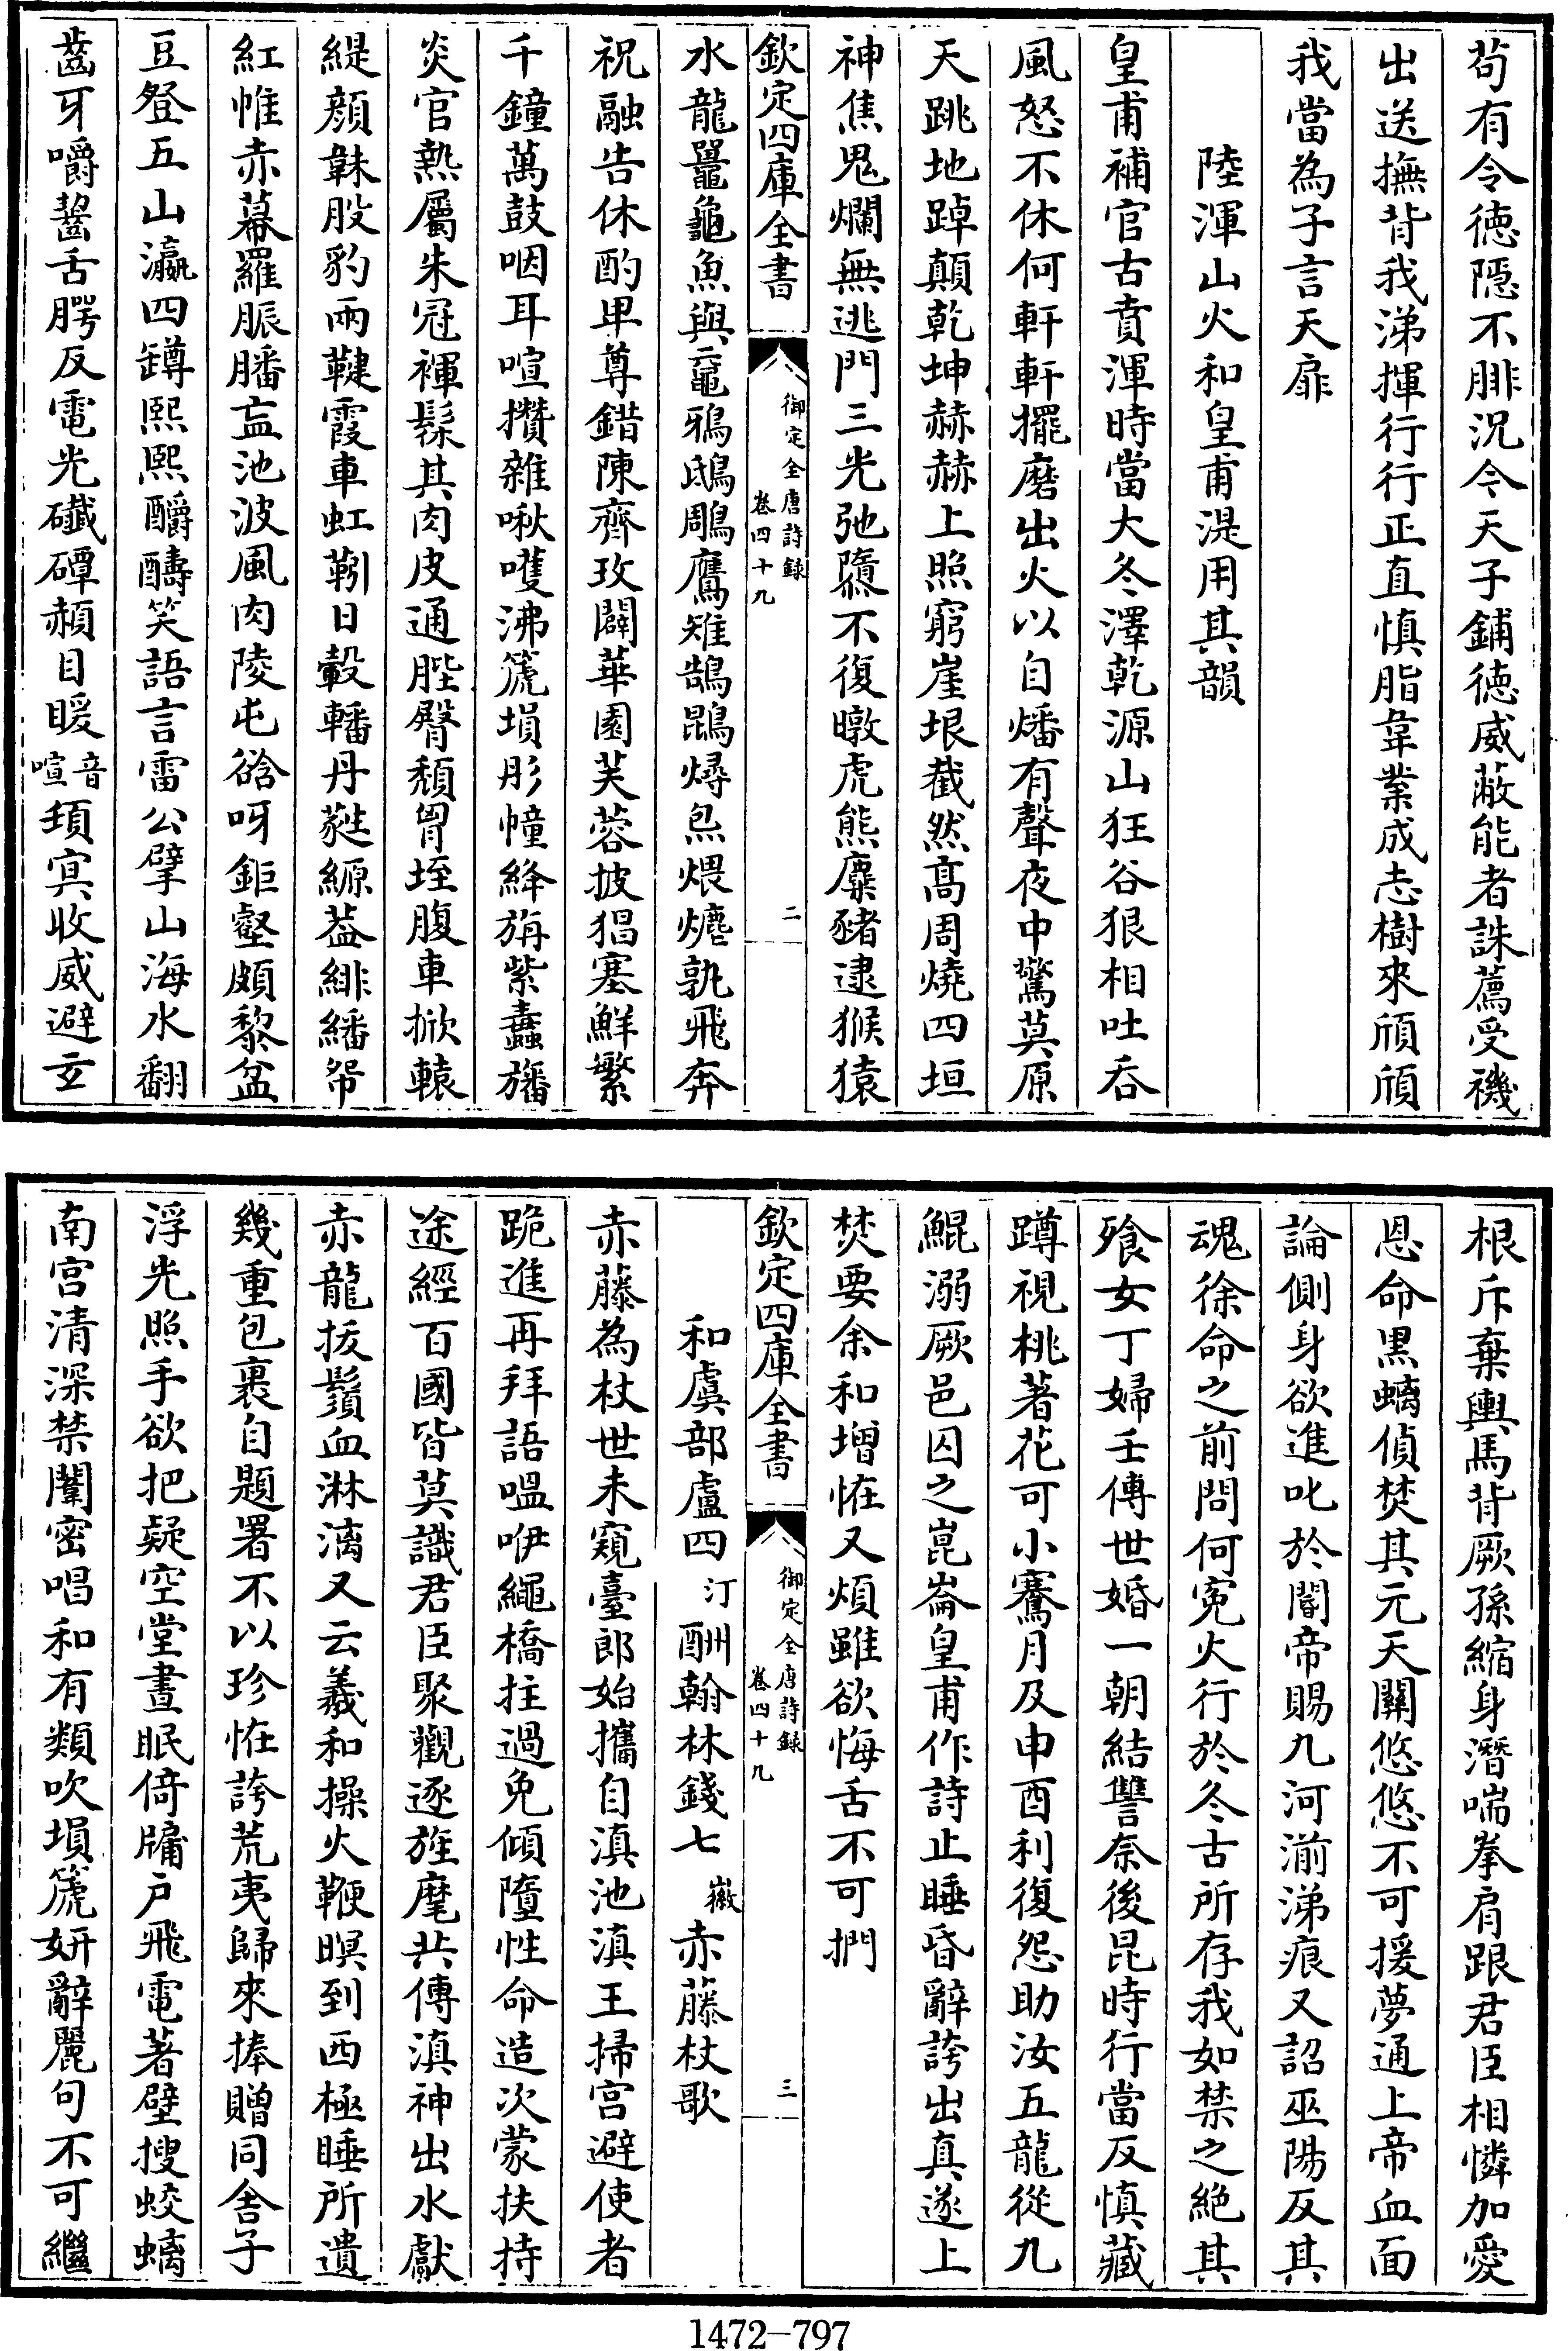 苟有令徳隠不腓況今天子鋪徳威蔽能者誅薦受禨
出送撫背我涕揮行行正直慎脂韋業成志樹來頎頎
我當為子言天扉
陸渾山火和皇甫湜用其韻
皇甫補官古賁渾時當大冬澤乾源山狂谷狠相吐吞
風怒不休何軒軒擺磨出火以自燔有聲夜中驚莫原
天跳地踔顛乾坤赫赫上照窮崖垠截然髙周燒四垣
神焦鬼爛無逃門三光弛隳不復暾虎熊麋豬逮猴猿
欽定四庫全書
御定全唐詩録
卷四十九
二
水龍鼉龜魚與黿鴉鴟鵰鷹雉鵠鵾燖炰煨爊孰飛奔
祝融告休酌卑尊錯陳齊玫闢華園芙蓉披猖塞鮮繁
千鐘萬鼓咽耳喧攢雜啾嚄沸篪塤彤幢絳旃紫纛旛
炎官熱屬朱冠褌髹其肉皮通䏶臀頹胷垤腹車掀轅
緹顔韎股豹兩鞬霞車虹靷日轂轓丹蕤縓葢緋繙帤
紅帷赤幕羅脤膰衁池波風肉陵屯谽呀鉅壑頗黎盆
豆登五山瀛四罇熙熙釂醻笑語言雷公擘山海水翻
齒牙嚼齧舌腭反電光䃸磹赬目暖
音
喧
頊㝠收威避玄
根斥棄輿馬背厥孫縮身潛喘拳肩跟君臣相憐加愛
恩命黒螭偵焚其元天闕悠悠不可援夢通上帝血面
論側身欲進叱於閽帝賜九河湔涕痕又詔巫陽反其
魂徐命之前問何寃火行於冬古所存我如禁之絶其
飱女丁婦壬傳世婚一朝結讐奈後昆時行當反慎藏
蹲視桃著花可小騫月及申酉利復怨助汝五龍從九
鯤溺厥邑囚之崑崙皇甫作詩止睡昏辭誇出真遂上
焚要余和增恠又煩雖欲悔舌不可捫
欽定四庫全書
御定全唐詩録
卷四十九
三
和虞部盧四
汀
酬翰林錢七
徽
赤藤杖歌
赤藤為杖世未窺臺郎始攜自滇池滇王掃宫避使者
跪進再拜語嗢咿繩橋拄過免傾墮性命造次蒙扶持
途經百國皆莫識君臣聚觀逐旌麾共傳滇神出水獻
赤龍拔鬚血淋漓又云羲和操火鞭暝到西極睡所遺
幾重包裹自題署不以珍恠誇荒夷歸來捧贈同舎子
浮光照手欲把疑空堂晝眠倚牖户飛電著壁搜蛟螭
南宫清深禁闈密唱和有類吹塤篪妍辭麗句不可繼
1472-797